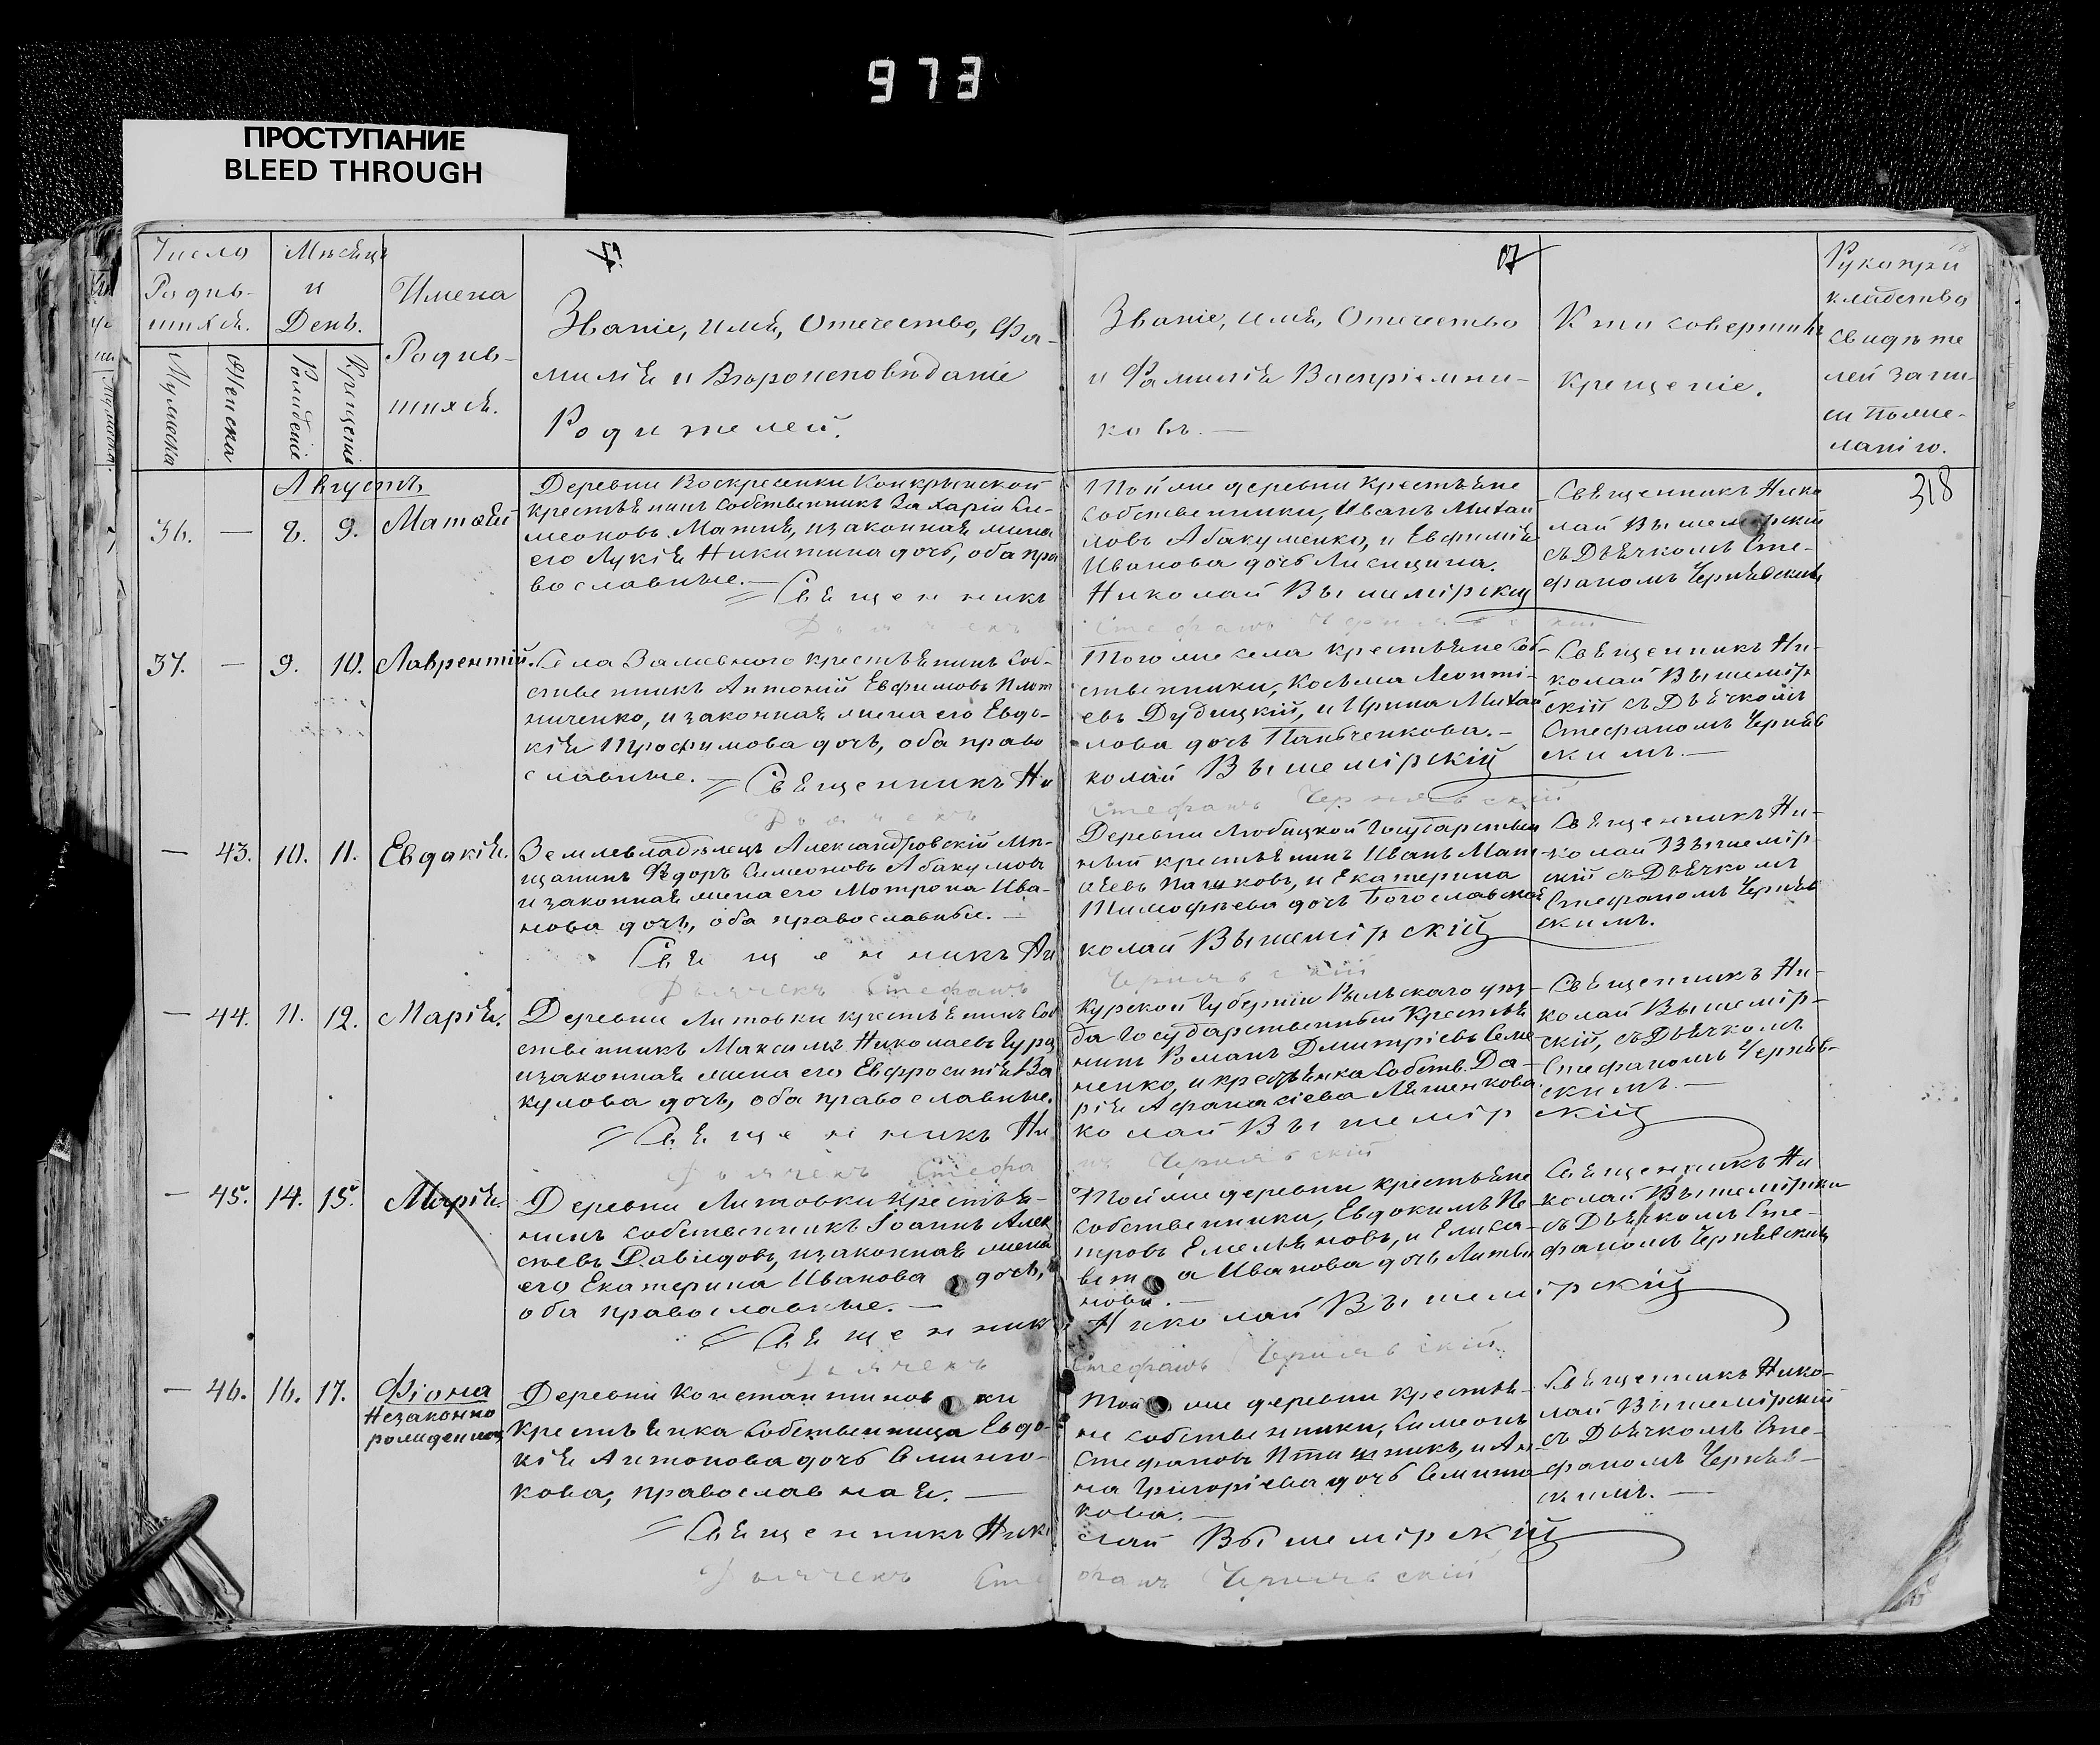 973
ПРОСТУПАНИЕ
BLEED THROUGH
Число
Родив-
шихся.
Мужеска
Женска
Мѣсяцъ
и
День.
Рожденіе
Крещеніе
Имена
Родив-
шихся.
Званіе, имя, Отечество, Фа-
милія и Вѣроисповѣданіе
Родителей.
Званіе, имя, Отечество
и Фамилія Воспріемни-
ковъ. —
Кто совершилъ
крещеніе.
Рукопри
кладство
свидѣте
лей запи-
си по же-
ланію.
318
Августъ
36. — 8. 9. Матѳей
Деревни Воскресенки Конкринской
крестьянинъ собственникъ Захарій Си-
меоновъ Матня, и законная жена
его Лукія Никитина дочь, оба пра
вославные. —
Священникъ
Той же деревни крестьяне
собственники, Иванъ Михаи
ловъ Абакуменко, и Евфимія
Иванова дочь Лисицина.
Николай Вышемірскій
Священникъ Нико
лай Вышемірскій
съ Дьячкомъ Сте-
фаномъ Чернявскимъ
Дьячекъ Стефанъ Чернявскій
37. — 9. 10. Лаврентій.
Села Заливного крестьянинъ соб-
ственникъ Антоній Евфимовъ Плот
ниченко, и законная жена его Евдо-
кія Трофимова дочь, оба право
славные. — Священникъ Ни
Того же села крестьяне соб-
ственники, Косьма Леонті-
евъ Дудицкій, и Ирина Михаи
лова дочь Панченкова. —
колай Вышемірскій
Священникъ Ни-
колай Вышемір
скій съ Дьячкомъ
Стефаномъ Черняв
скимъ. —
Дьячекъ Стефанъ Чернявскій
— 43. 10. 11. Евдокія.
Землевладѣлецъ Александровскій Мѣ-
щанинъ Ѳедоръ Симеоновъ Абакумовъ
и законная жена его Мотрона Ива-
нова дочь, оба православные. —
Священникъ Ни
Деревни Любицкой Государствен
ный крестьянинъ Иванъ Мат
ѳеевъ Пашковъ, и Екатерина
Тимофѣева дочь Богославская
колай Вышемірскій
Священникъ Ни-
колай Вышемір-
скій съ Дьячкомъ
Стефаномъ Черняв
скимъ.
Дьячекъ Стефанъ Чернявскій
— 44. 11. 12. Марія.
Деревни Литовки крестьянинъ соб
ственникъ Максимъ Николаевъ
и законная жена его Евфросинія
кулова дочь, оба православные.
Священникъ Ни
Курской Губерніи Рыльскаго уѣз-
да Государственный Крестья
нинъ Романъ Дмитріевъ Семе
ненко, и крестьянка собств. Да-
рія Афанасіева Ляшенкова
колай Вышемірскій
Священникъ Ни-
колай Вышемір-
скій, съ Дьячкомъ
Стефаномъ Черняв-
скимъ. —
Дьячекъ Стефанъ Чернявскій
— 45. 14. 15. Марія.
Деревни Литовки крестья-
нинъ собственникъ Іоаннъ Алек
сѣевъ Давидовъ, и законная жена
его Екатерина Иванова дочь,
оба православные. —
Священник
Той же деревни крестьяне
собственники, Евдокимъ Пе
тровъ Емельяновъ, и Елиса-
вета Иванова дочь Литви
нова. —
Николай Вышемірскій
Священникъ Ни
колай Вышемірскі
съ Дьячкомъ Сте-
фаномъ Чернявскимъ
Дьячекъ Стефанъ Чернявскій
— 46. 16. 17. Фіона
Незаконно
рожденная
Деревни Константиновки
Крестьянка собственница Евдо-
кія Антонова дочь Семино-
кова, православная. —
Священникъ Нико
Той же деревни крестья-
не собственники, Симеонъ
Стефановъ Птишникъ, и Ан
на Григоріева дочь Семино
кова. —
лай Вышемірскій
Священникъ Нико-
лай Вышемірскій
съ Дьячкомъ Сте-
фаномъ Черняв-
скимъ. —
Дьячекъ Стефанъ Чернявскій